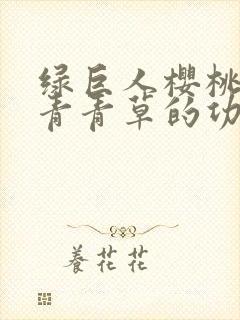 绿巨人樱桃
青青草的功
養花花